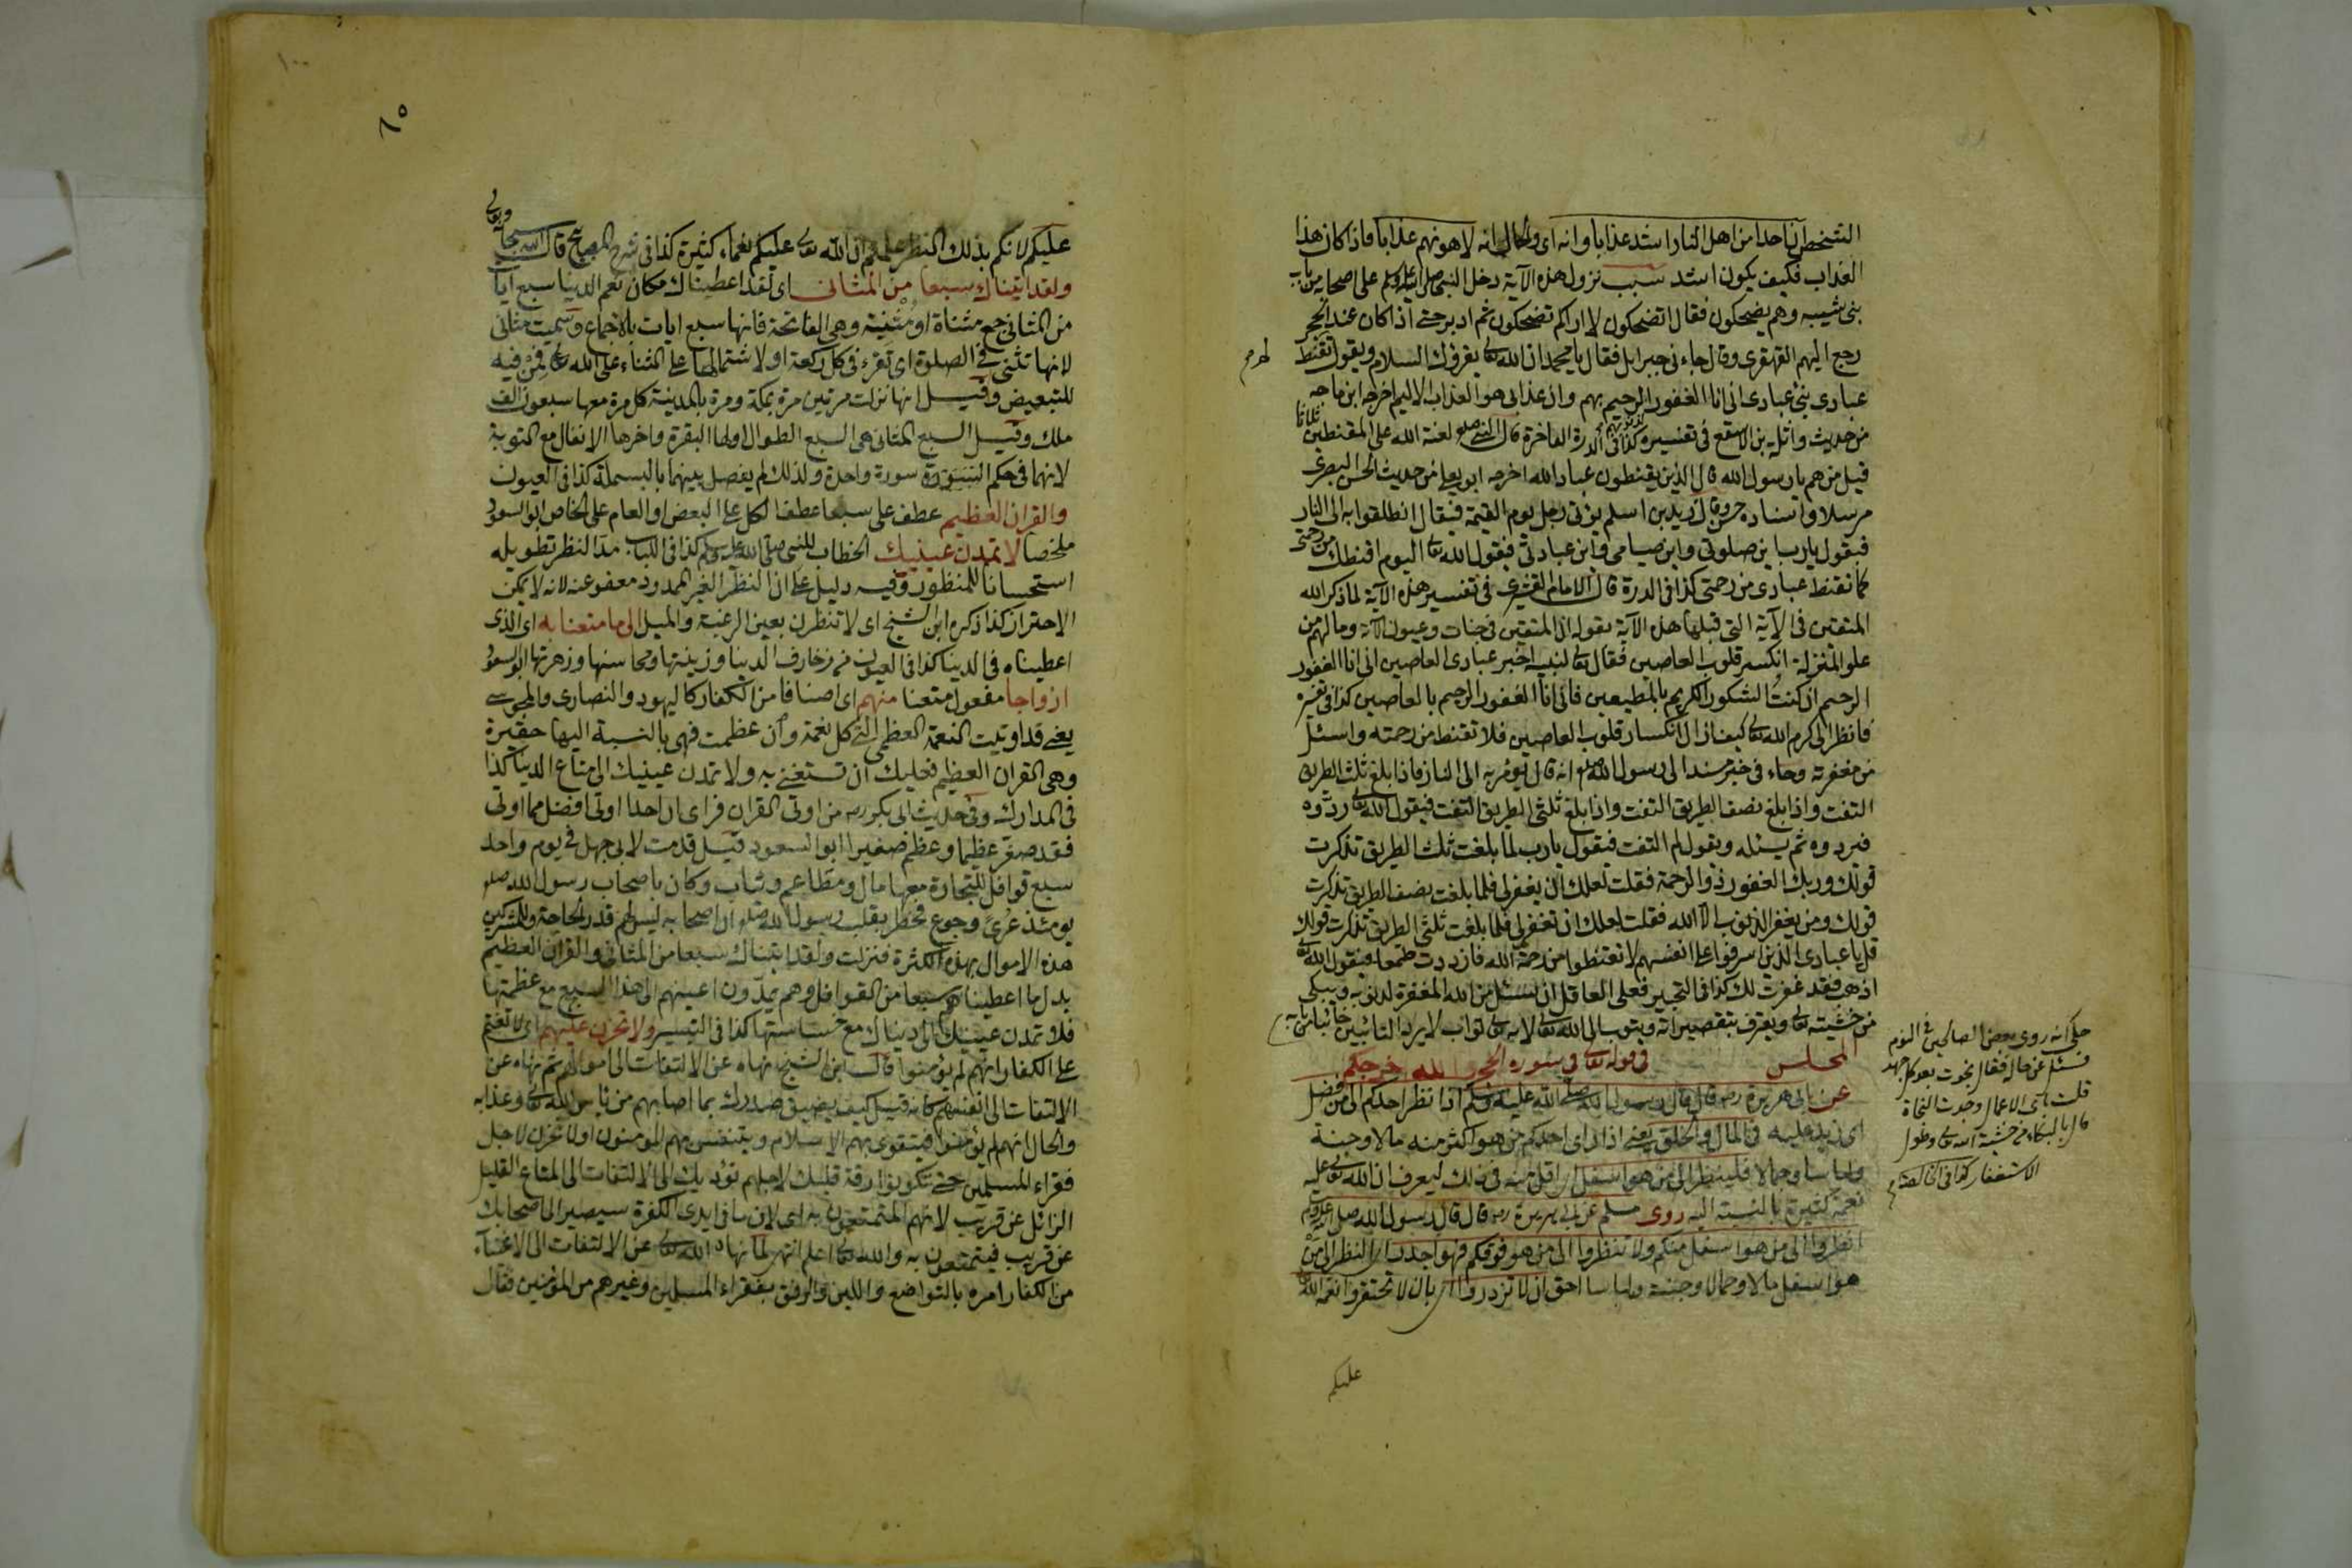 الشخص ان احدا من اهل النار اشد عذابا وانه اى والحال انه لاهونهم عذابا فاذا كان هذا
العذاب فكيف يكون اشد سبب نزول هذه الآية دخل النبى صلى الله عليه وسلم على اصحابه من باب
بنى شيبه وهم يضحكون فقال اتضحكون لا اراكم تضحكون ثم ادبر حتى اذا كان عند الحجر
رجع اليهم القهقرى وقال جاءنى جبرايل فقال يا محمد ان الله تعالى يقرؤك السلام ويقول تقنط
عبادى نبئ عبادى انى انا الغفور الرحيم بهم وان عذابى هو العذاب الاليم اخرجه ابن ماجه
من حديث واثلة بن الاسقع فى تفسيره كذا فى الدرة الفاخرة قال النبى صلعم لعنة الله على المقنطين ثلاثا
قيل من هم يا رسول الله قال الذين يقنطون عباد الله اخرجه ابو يعلى من حديث الحسن البصرى
مرسلا واسناده وقال زيد بن اسلم يؤتى رجل يوم القيمة فيقال انطلقوا به الى النار
فيقول يا رب اين صلوتى واين صيامى واين عبادتى فيقول الله تعالى اليوم اقنطك من رحمتى
كما تقنط عبادى من رحمتى كذا فى الدرة قال الامام القشيرى فى تفسير هذه الآية لما ذكر الله
المتقين فى الآية التى قبلها هذه الآية بقوله ان المتقين فى جنات وعيون الآية وما لهم من
علو المنزلة انكسر قلوب العاصين فقال تعالى لنبيه اخبر عبادى العاصين انى انا الغفور
الرحيم ان كنت الشكور الكريم بالمطيعين فانى انا الغفور الرحيم بالعاصين كذا فى تفسيره
فانظر الى كرم الله تعالى كيف ازال انكسار قلوب العاصين فلا تقنط من رحمته واسئل
من مغفرته وجاء فى خبر مسندا الى رسول الله صلعم انه قال يؤمر به الى النار فاذا بلغ ثلث الطريق
التفت واذا بلغ نصف الطريق التفت واذا بلغ ثلثى الطريق التفت فيقول الله تعالى ردوه
فيردوه ثم يسئله ويقول لم التفت فيقول يا رب لما بلغت ثلث الطريق تذكرت
قولك وربك الغفور ذو الرحمة فقلت لعلك ان يغفر لى فلما بلغت نصف الطريق تذكرت
قولك ومن يغفر الذنوب الا الله فقلت لعلك ان تغفر لى فلما بلغت ثلثى الطريق تذكرت قولك
قل يا عبادى الذين اسرفوا على انفسهم لا تقنطوا من رحمة الله فازددت طمعا فيقول الله تعالى
اذهب فقد غفرت لك كذا فى التحبير فعلى العاقل ان يسئل من الله المغفرة لذنوبه ويبكى
من خشيته تعالى ويعترف بتقصيراته ويتوب الى الله تعالى لانه تعالى تواب لا يرد التائبين خائبا من بابه
المجلس فى قوله تعالى فى سورة الحجر
عن ابى هريرة رضه قال قال رسول الله صلى الله عليه وسلم اذا نظر احدكم الى من فضل
اى زيد عليه فى المال والخلق يعنى اذا راى احدكم من هو اكثر منه مالا وجثة
ولباسا وجمالا فلينظر الى من هو اسفل اى اقل منه فى ذلك ليعرف ان الله تعالى عليه
نعمة كثيرة بالنسبة اليه روى مسلم عن ابى هريرة رضه قال قال رسول الله صلى الله عليه وسلم
انظروا الى من هو اسفل منكم ولا تنظروا الى من هو فوقكم فهو اجدر اى النظر الى من
هو اسفل مالا وجمالا وجثة ولباسا احق ان لا تزدروا اى بان لا تحتقروا نعمة الله
عليكم
حكى انه روى بعض الصالحين فى النوم
فسئل عن حاله فقال نجوت بعد كل جهد
قلت باى الاعمال وجدت النجاة
قال بالبكاء من خشية الله تعالى وطول
الاستغفار كذا فى
٦٥
عليكم لانكم بذلك النظر علمتم ان لله تعالى عليكم نعماء كثيرة كذا فى شرح المصابيح قال الله سبحانه وتعالى
ولقد اتيناك سبعا من المثانى اى لقد اعطيناك مكان نعم الدنيا سبع آيات
من المثانى جمع مثناة او مثنية وهى الفاتحة فانها سبع ايات بالاجماع وسميت مثانى
لانها تثنى فى الصلوة اى تقرء فى كل ركعة او لاشتمالها على الثناء على الله تعالى فمن فيه
للتبعيض وقيل انها نزلت مرتين مرة بمكة ومرة بالمدينة كل مرة معها سبعون الف
ملك وقيل السبع المثانى هى السبع الطوال اولها البقرة واخرها الانفال مع التوبة
لانهما فى حكم السورة سورة واحدة ولذلك لم يفصل بينهما بالبسملة كذا فى العيون
والقران العظيم عطف على سبعا عطف الكل على البعض او العام على الخاص ابو السعود
ملخصا لا تمدن عينيك الخطاب للنبى صلى الله عليه وسلم كذا فى اللباب مد النظر تطويله
استحسانا للمنظور وفيه دليل على ان النظر الغير الممدود معفو عنه لانه لا يمكن
الاحتراز كذا ذكره ابن الشيخ اى لا تنظرن بعين الرغبة والميل الى ما متعنا به اى الذى
اعطيناه فى الدنيا كذا فى العيون من زخارف الدنيا وزينتها ومحاسنها وزهرتها ابو السعود
ازواجا مفعول متعنا منهم اى اصنافا من الكفار كاليهود والنصارى والمجوس
يعنى قد اوتيت النعمة العظمى التى كل نعمة وان عظمت فهى بالنسبة اليها حقيرة
وهى القران العظيم فعليك ان تستغنى به ولا تمدن عينيك الى متاع الدنيا كذا
فى المدارك وفى حديث ابى بكر رضه من اوتى القران فراى ان احدا اوتى افضل مما اوتى
فقد صغر عظيما وعظم صغيرا ابو السعود قيل قدمت لابى جهل فى يوم واحد
سبع قوافل للتجارة معها مال ومطاعم وثياب وكان باصحاب رسول الله صلعم
يومئذ عرى وجوع فخطر بقلب رسول الله صلعم ان اصحابه ليس لهم قدر الحاجة وللمشركين
هذه الاموال بهذه الكثرة فنزلت ولقد اتيناك سبعا من المثانى والقران العظيم
بدل ما اعطيناهم سبعا من القوافل وهم يمدون اعينهم الى هذا السبع مع عظمتها
فلا تمدن عينيك الى دنياك مع خساستها كذا فى التيسير ولا تحزن عليهم اى لا تغتم
على الكفار انهم لم يؤمنوا قال ابن الشيخ نهاه عن الالتفات الى اموالهم ثم نهاه عن
الالتفات الى انفسهم كانه قيل كيف يضيق صدرك بما اصابهم من باس الله تعالى وعذابه
والحال انهم لم يؤمنوا فيتقوى بهم الاسلام ويتنفس بهم المؤمنون او لا تحزن لاجل
فقراء المسلمين حتى تكون رقة قلبك لاجلهم تؤديك الى الالتفات الى المتاع القليل
الزائل عن قريب لانهم المتمتعون به اى لان ما فى ايدى الكفرة سيصير الى اصحابك
عن قريب فيتمتعون به والله تعالى اعلم انتهى لما نهاه الله تعالى عن الالتفات الى الاغنياء
من الكفار امره بالتواضع واللين والرفق بفقراء المسلمين وغيرهم من المؤمنين فقال